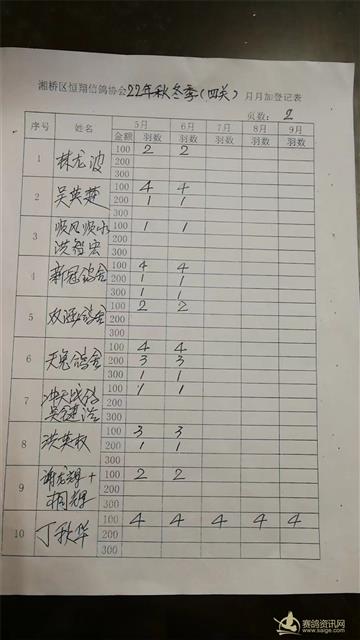 湘桥区恒翔信鸽协会22年秋冬季(四关)月月加登记表
页数: 2
序号 姓名 5月 6月 7月 8月 9月
金额 羽数 羽数 羽数 羽数 羽数
1 林龙波 100 2 2
200
300
2 吴英楚 100 4 4
200 1 1
300
3 顺风顺水 100 1 1
洪智宏 200
300
4 新冠鸽舍 100 4 4
200 1 1
300 1 1
5 双涵鸽舍 100 2 2
200
300
6 天宠鸽舍 100 4 4
200 3 3
300 1 1
7 冲天战鸽 100 1 1
200
300
8 洪英权 100 3 3
200 1 1
300
9 谢龙辉+ 100 2 2
200
300
10 丁秋华 100 4 4 4 4 4
200
300
赛鸽资讯网
www.saige.com